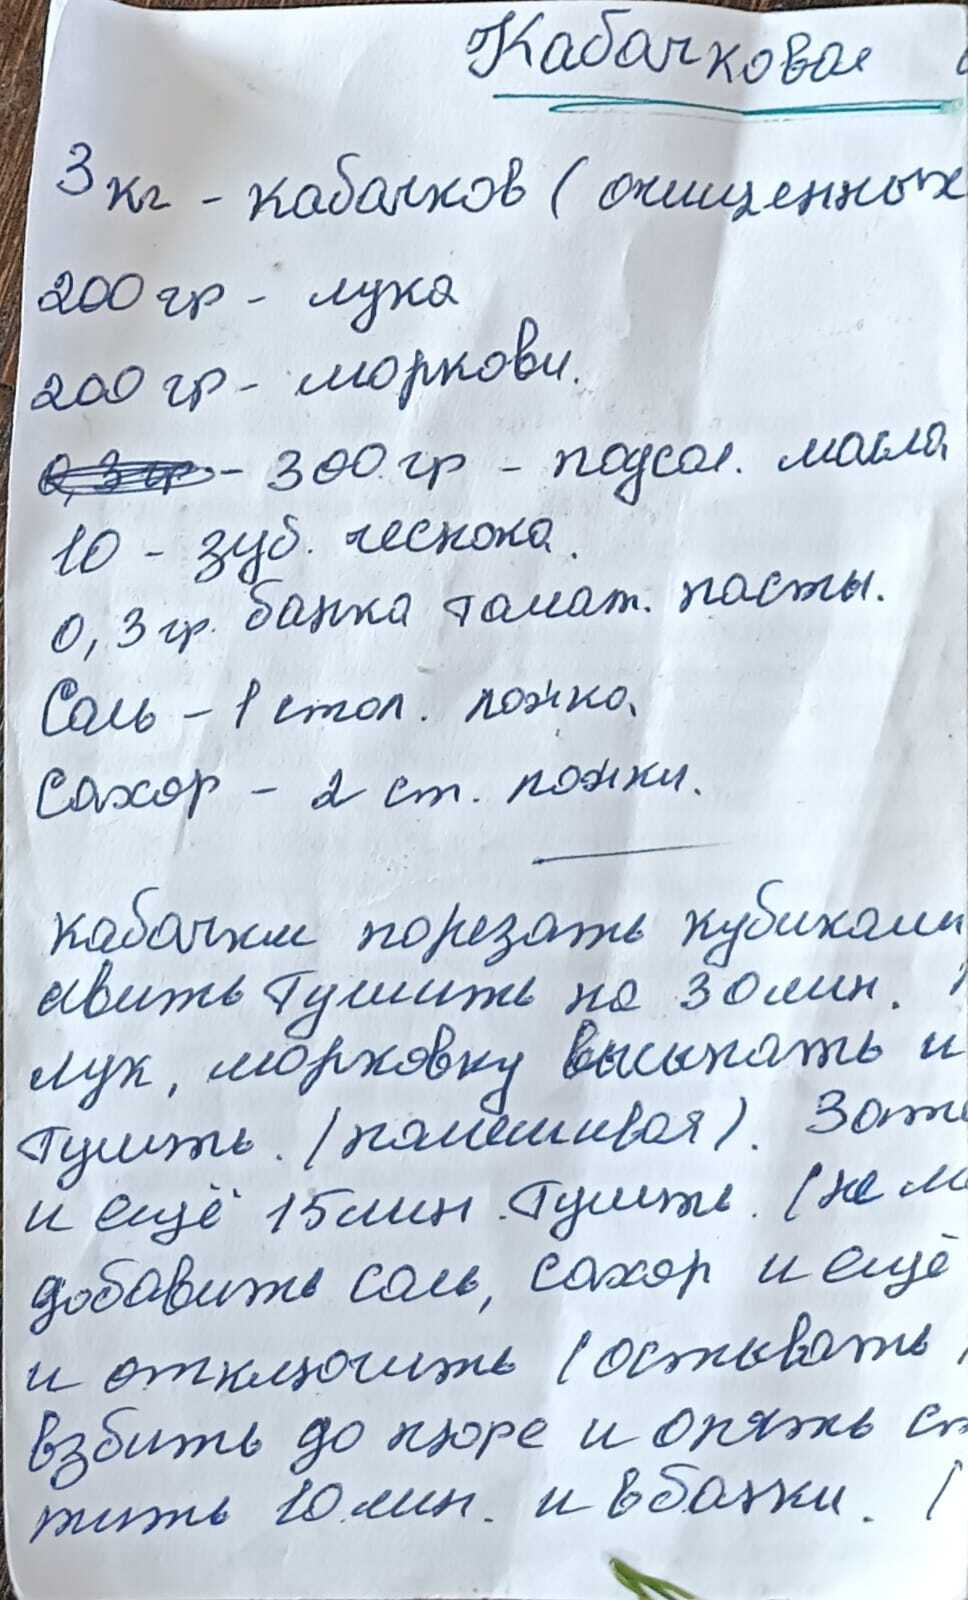 Кабачковая
3 кг - кабачков ( очищенных
200 гр - лука
200 гр - моркови.
0,3 гр - 300 гр - подсол. масла
10 - зуб. чеснока.
0,3 гр. банка томат. пасты.
Соль - 1 стол. ложка.
Сахар - 2 ст. ложки.
Кабачки порезать кубиками
авить тушить на 30 мин.
лук, морковку высыпать и
тушить. (помешивая). Зате
и ещё 15 мин. тушить. (не
добавить соль, сахар и ещё
и отключить (остывать
взбить до пюре и опять ст
тить 10 мин. и в банки. (